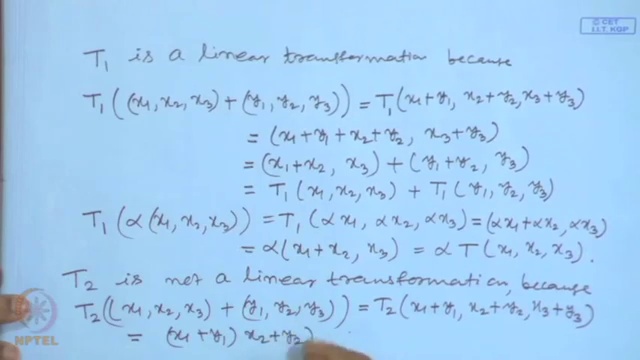 © CET
I.I.T. KGP
T₁ is a linear transformation because
T₁((x₁, x₂, x₃) + (y₁, y₂, y₃)) = T₁(x₁+y₁, x₂+y₂, x₃+y₃)
= (x₁+y₁+x₂+y₂, x₃+y₃)
= (x₁+x₂, x₃) + (y₁+y₂, y₃)
= T₁(x₁, x₂, x₃) + T₁(y₁, y₂, y₃)
T₁(α(x₁, x₂, x₃)) = T₁(αx₁, αx₂, αx₃) = (αx₁+αx₂, αx₃)
= α(x₁+x₂, x₃) = αT(x₁, x₂, x₃).
T₂ is not a linear transformation, because
T₂((x₁, x₂, x₃) + (y₁, y₂, y₃)) = T₂(x₁+y₁, x₂+y₂, x₃+y₃)
= (x₁+y₁) x₂+y₂)
NPTEL